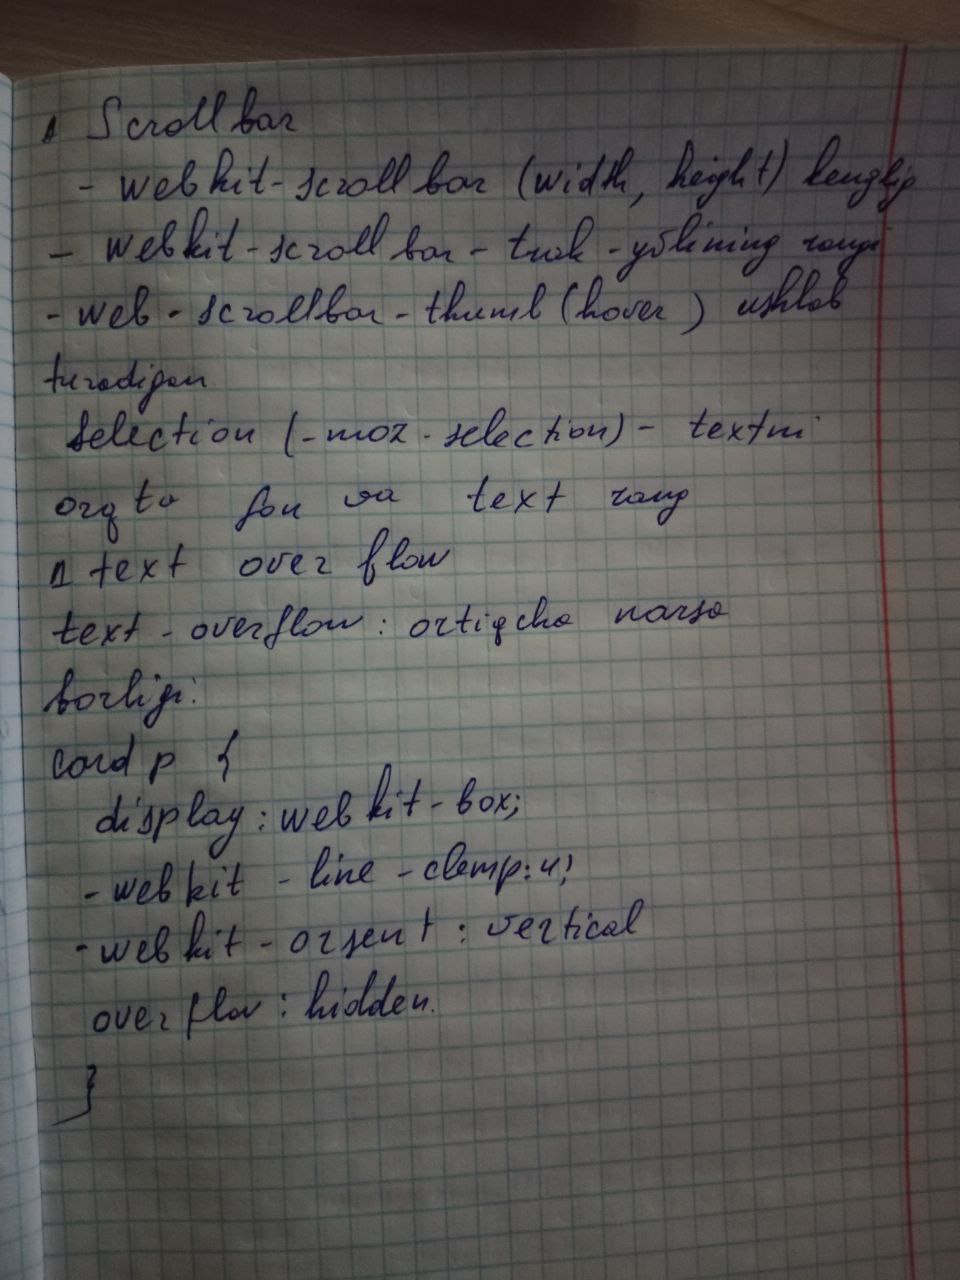 1 Scroll bar
- webkit-scroll bar (width, height) kengligi
- webkit-scroll bar - trak - yo'lining rangi
- web - scrollbar - thumb (hover) ushlab
turadigan
selection (-moz-selection) - textni
orqa fon va text rang
1 text overflow
text - overflow : ortiqcha narsa
borligi:
card p {
display : webkit-box;
-webkit - line - clemp: 4;
-webkit - orient : vertical
overflow : hidden.
}